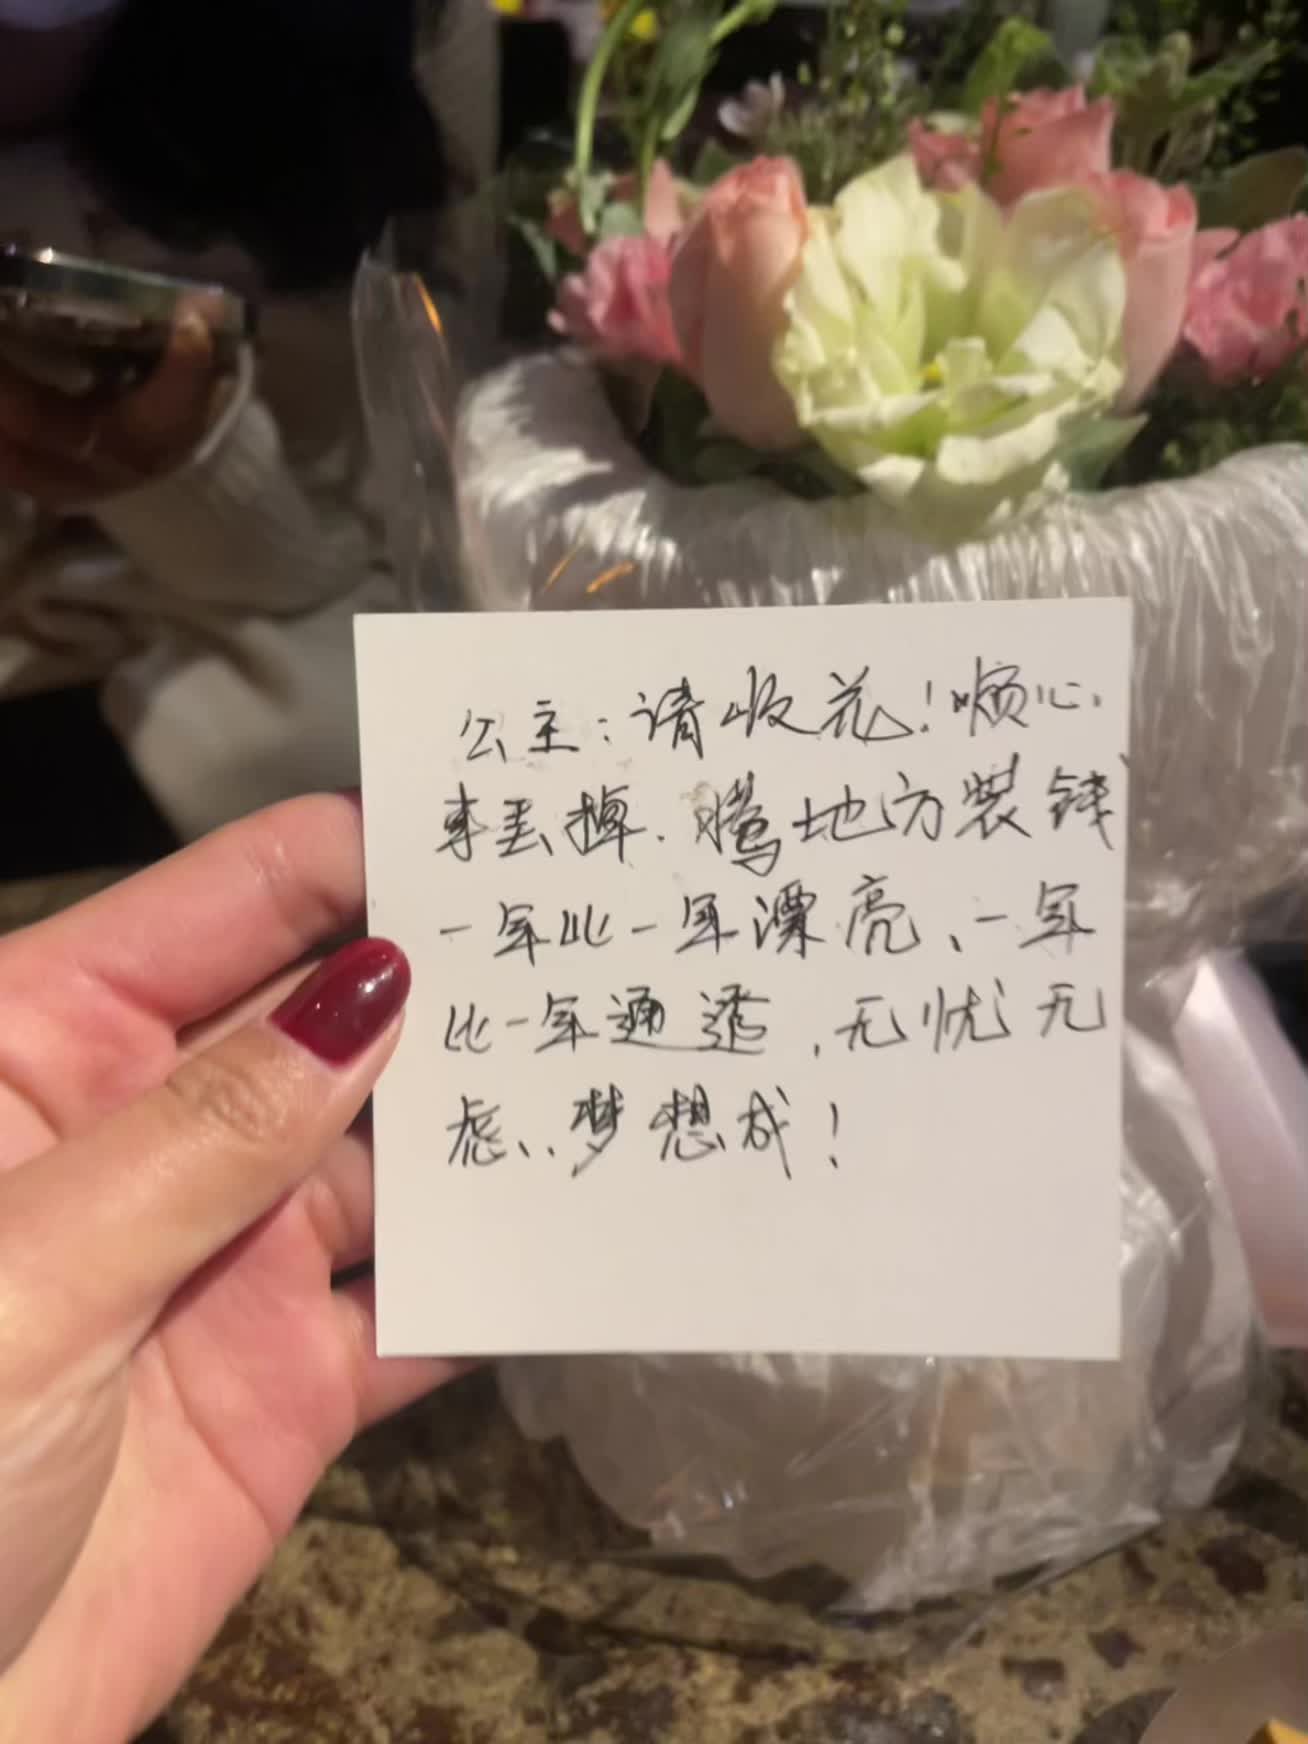 公主：请收花！烦心
事丢掉．腾地方装钱
一年比一年漂亮、一年
比一年通透，无忧无
虑、梦想成！